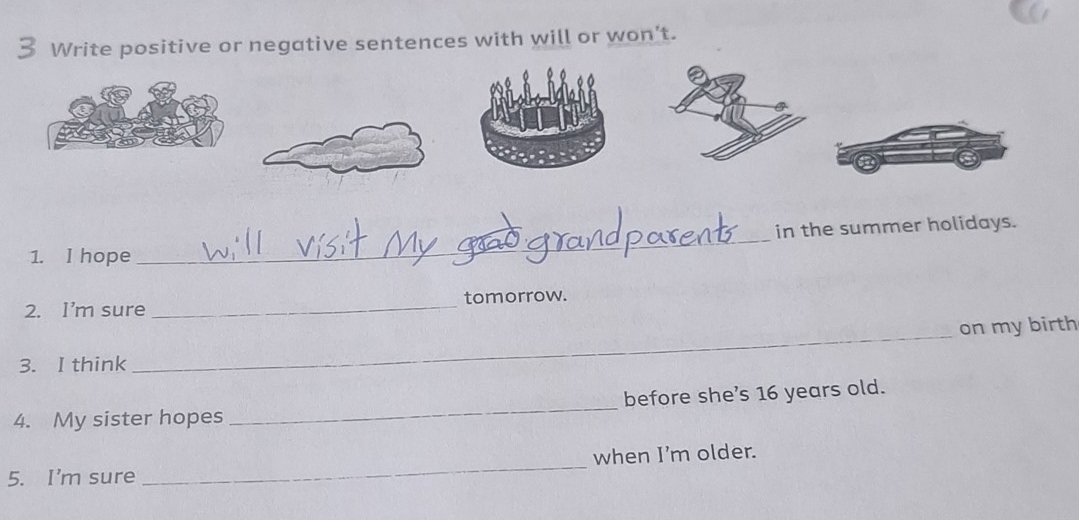 3 Write positive or negative sentences with will or won't.
1. I hope will visit My grandparents in the summer holidays.
2. I'm sure ____ tomorrow.
3. I think ____ on my birth
4. My sister hopes ____ before she's 16 years old.
5. I'm sure ____ when I'm older.